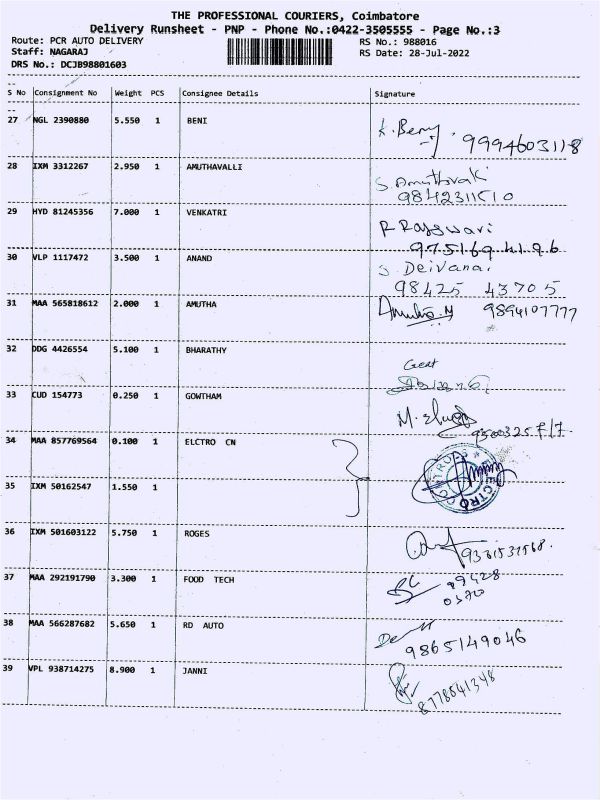 THE PROFESSIONAL COURIERS, Coimbatore
Delivery Runsheet - PNP - Phone No.:0422-3505555 - Page No.:3
Route: PCR AUTO DELIVERY RS No.: 988016
Staff: NAGARAJ RS Date: 28-Jul-2022
DRS No.: DCJB98801603
S No Consignment No Weight PCS Consignee Details Signature
27 NGL 2390880 5.550 1 BENI
K. Beny. 9994603118
28 IXM 3312267 2.950 1 AMUTHAVALLI
S. Amuthavalli
9842311510
29 HYD 81245356 7.000 1 VENKATRI
R Rajswari
9751694196
30 VLP 1117472 3.500 1 ANAND
S Deivanai
98425 43705
31 MAA 565818612 2.000 1 AMUTHA
Amutha.M 9894107777
32 DDG 4426554 5.100 1 BHARATHY
33 CUD 154773 0.250 1 GOWTHAM
34 MAA 857769564 0.100 1 ELCTRO CN
35 IXM 50162547 1.550 1
36 IXM 501603122 5.750 1 ROGES
37 MAA 292191790 3.300 1 FOOD TECH
38 MAA 566287682 5.650 1 RD AUTO
9865149046
39 VPL 938714275 8.900 1 JANNI
8778541348